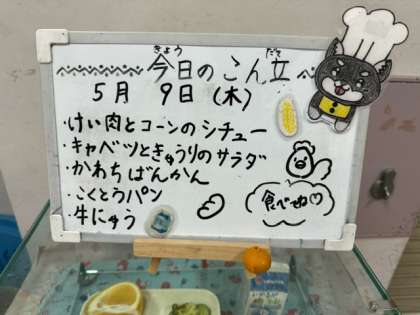 きょう だて
今日のこん立
5月 9日 (木)
・けい肉とコーンのシチュー
・キャベツときゅうりのサラダ
・かわちばんかん
・こくとうパン
・牛にゅう
食べてね♡